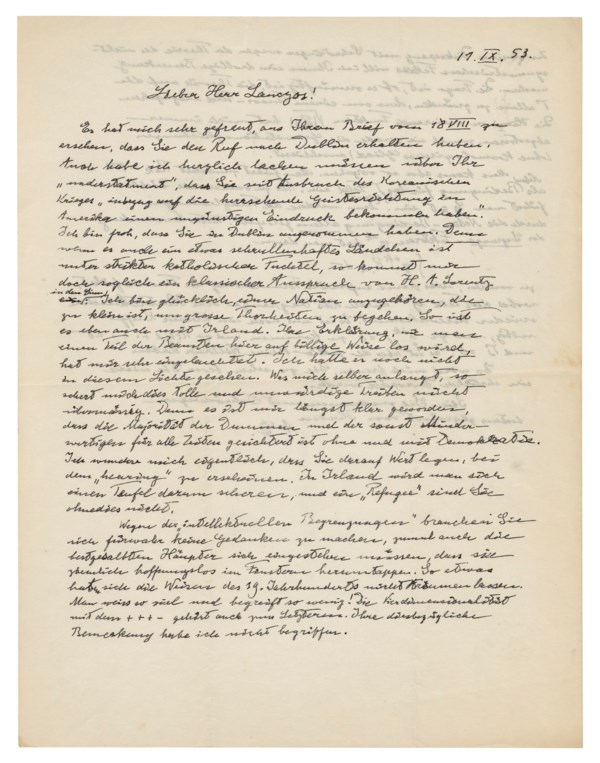 11. IX. 53.
Lieber Herr Lanczos!
Es hat mich sehr gefreut, aus Ihrem Brief vom 18 VIII zu
ersehen, dass Sie den Ruf nach Dublin erhalten haben.
Auch habe ich herzlich lachen müssen über Ihr
„understatment", dass Sie seit Ausbruch des Koreanischen
Krieges „inbezug auf die herrschende Geistesrichtung in
Amerika einen ungünstigen Eindruck bekommen haben".
Ich bin froh, dass Sie in Dublin angenommen haben. Denn
wenn es auch ein etwas schrullenhaftes Ländchen ist
unter strikter katholischer Fuchtel, so kommt mir
doch sogleich ein klassischer Ausspruch von H. A. Lorentz
in den Sinn: Ich bin glücklich, einer Nation anzugehören, die
zu klein ist, um grosse Thorheiten zu begehen. So ist
es eben auch mit Irland. Ihre Erklärung, wie man
einen Teil der Beamten hier auf billige Weise los würd,
hat mir sehr eingeleuchtet. Ich hatte es noch nicht
in diesem Lichte gesehen. Was mich selber anlangt, so
schert mich dies tolle und unwürdige Treiben nicht
übermässig. Denn es ist mir längst klar geworden,
dass die Majorität der Dummen und der sonst Minder-
wertigen für alle Zeiten gesichert ist ohne und mit Demokratie.
Ich wundere mich eigentlich, dass Sie darauf Wert legen, bei
dem „hearing" zu erscheinen. In Irland wird man sich
einen Teufel darum scheren, und ein „Refugee" sind Sie
ohnedies nicht.
Wegen der „intellektuellen Begrenzungen" brauchen Sie
sich fürwahr keine Gedanken zu machen, zumal auch die
bestgesalbten Häupter sich eingestehen müssen, dass sie
ziemlich hoffnungslos im Finstern herumtappen. So etwas
haben sich die Weisen des 19. Jahrhunderts nicht träumen lassen.
Man weiss so viel und begreift so wenig! Die Vierdimensionalität
mit dem + + + - gehört auch zum Letzteren. Ihre diesbezügliche
Bemerkung habe ich nicht begriffen.